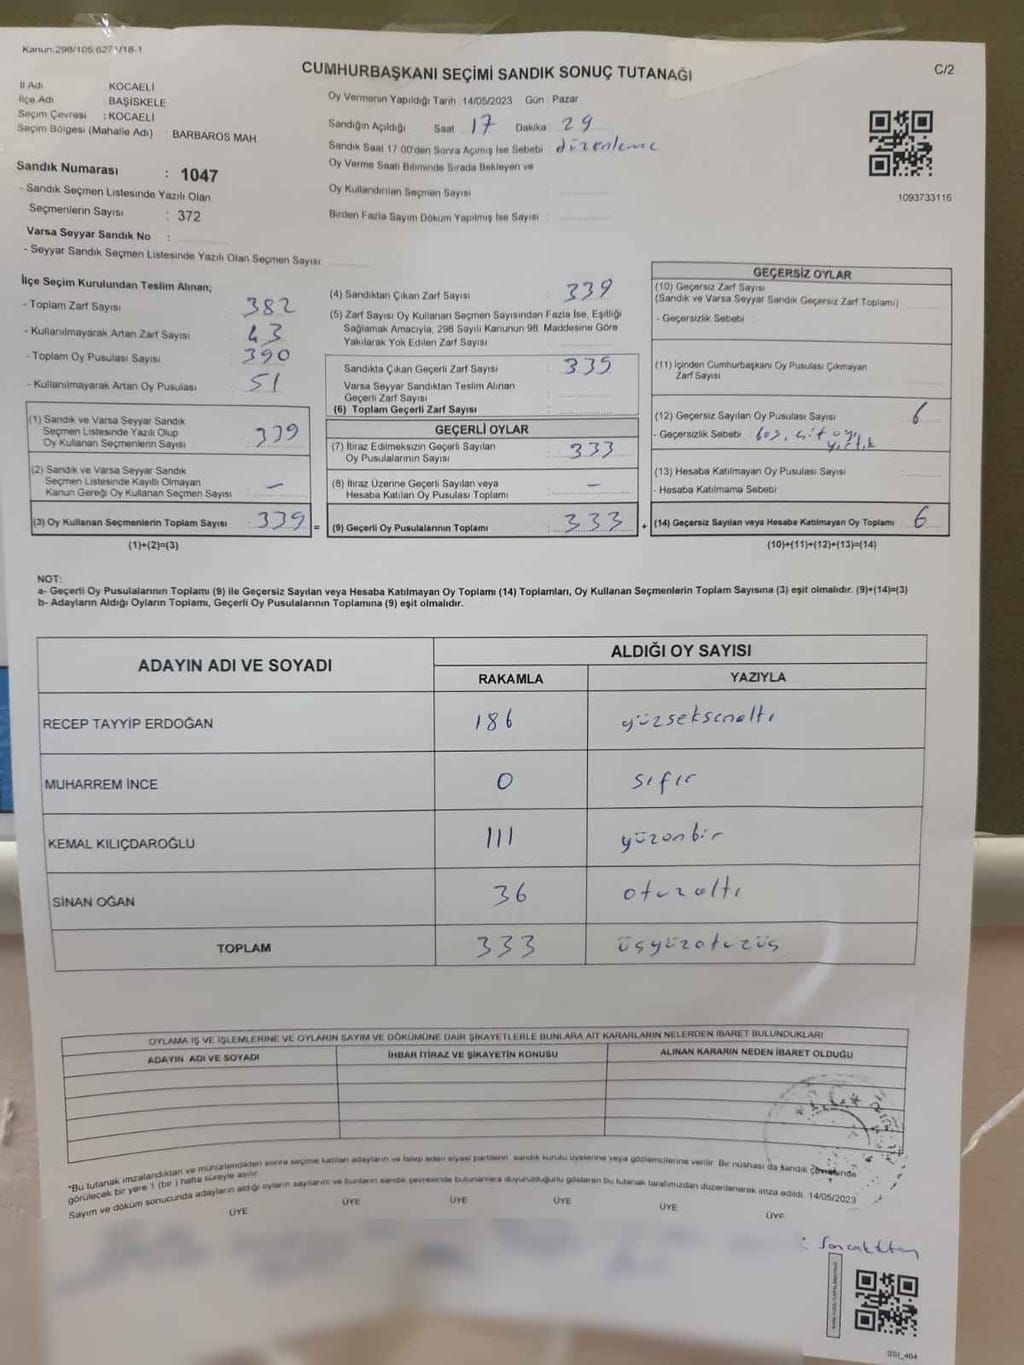 Kanun:298/105,6271/18-1
CUMHURBAŞKANI SEÇİMİ SANDIK SONUÇ TUTANAĞI
C/2
İl Adı KOCAELİ
İlçe Adı BAŞİSKELE
Seçim Çevresi : KOCAELİ
Seçim Bölgesi (Mahalle Adı) BARBAROS MAH
Sandık Numarası : 1047
- Sandık Seçmen Listesinde Yazılı Olan
Seçmenlerin Sayısı : 372
Varsa Seyyar Sandık No :
- Seyyar Sandık Seçmen Listesinde Yazılı Olan Seçmen Sayısı
Oy Vermenin Yapıldığı Tarih : 14/05/2023 Gün : Pazar
Sandığın Açıldığı Saat 17 Dakika 29
Sandık Saat 17.00'den Sonra Açımış İse Sebebi : düzenleme
Oy Verme Saati Bitiminde Sırada Bekleyen ve
Oy Kullandırılan Seçmen Sayısı :
Birden Fazla Sayım Döküm Yapılmış İse Sayısı :
1093733116
İlçe Seçim Kurulundan Teslim Alınan;
- Toplam Zarf Sayısı : 382
- Kullanılmayarak Artan Zarf Sayısı : 43
- Toplam Oy Pusulası Sayısı : 390
- Kullanılmayarak Artan Oy Pusulası : 51
(1) Sandık ve Varsa Seyyar Sandık
Seçmen Listesinde Yazılı Olup
Oy Kullanan Seçmenlerin Sayısı : 339
(2) Sandık ve Varsa Seyyar Sandık
Seçmen Listesinde Kayıtlı Olmayan
Kanun Gereği Oy Kullanan Seçmen Sayısı : -
(3) Oy Kullanan Seçmenlerin Toplam Sayısı : 339 =
(1)+(2)=(3)
(4) Sandıktan Çıkan Zarf Sayısı : 339
(5) Zarf Sayısı Oy Kullanan Seçmen Sayısından Fazla İse, Eşitliği
Sağlamak Amacıyla, 298 Sayılı Kanunun 98. Maddesine Göre
Yakılarak Yok Edilen Zarf Sayısı :
Sandıkta Çıkan Geçerli Zarf Sayısı : 339
Varsa Seyyar Sandıktan Teslim Alınan
Geçerli Zarf Sayısı :
(6) Toplam Geçerli Zarf Sayısı :
GEÇERLİ OYLAR
(7) İtiraz Edilmeksizin Geçerli Sayılan
Oy Pusulalarının Sayısı : 333
(8) İtiraz Üzerine Geçerli Sayılan veya
Hesaba Katılan Oy Pusulası Toplamı : -
(9) Geçerli Oy Pusulalarının Toplamı : 333 +
GEÇERSİZ OYLAR
(10) Geçersiz Zarf Sayısı
(Sandık ve Varsa Seyyar Sandık Geçersiz Zarf Toplamı) :
- Geçersizlik Sebebi :
(11) İçinden Cumhurbaşkanı Oy Pusulası Çıkmayan
Zarf Sayısı :
(12) Geçersiz Sayılan Oy Pusulası Sayısı : 6
- Geçersizlik Sebebi : boş, çift oy,
yırtık
(13) Hesaba Katılmayan Oy Pusulası Sayısı :
- Hesaba Katılmama Sebebi :
(14) Geçersiz Sayılan veya Hesaba Katılmayan Oy Toplamı : 6
(10)+(11)+(12)+(13)=(14)
NOT:
a- Geçerli Oy Pusulalarının Toplamı (9) ile Geçersiz Sayılan veya Hesaba Katılmayan Oy Toplamı (14) Toplamları, Oy Kullanan Seçmenlerin Toplam Sayısına (3) eşit olmalıdır. (9)+(14)=(3)
b- Adayların Aldığı Oyların Toplamı, Geçerli Oy Pusulalarının Toplamına (9) eşit olmalıdır.
ADAYIN ADI VE SOYADI ALDIĞI OY SAYISI
RAKAMLA YAZIYLA
RECEP TAYYİP ERDOĞAN 186 yüzseksenaltı
MUHARREM İNCE 0 sıfır
KEMAL KILIÇDAROĞLU 111 yüzonbir
SİNAN OĞAN 36 otuzaltı
TOPLAM 333 üçyüzotuzüç
OYLAMA İŞ VE İŞLEMLERİNE VE OYLARIN SAYIM VE DÖKÜMÜNE DAİR ŞİKAYETLERLE BUNLARA AİT KARARLARIN NELERDEN İBARET BULUNDUKLARI
ADAYIN ADI VE SOYADI İHBAR İTİRAZ VE ŞİKAYETİN KONUSU ALINAN KARARIN NEDEN İBARET OLDUĞU
*Bu tutanak imzalandıktan ve mühürlendikten sonra seçime katılan adayların ve talep eden siyasi partilerin sandık kurulu üyelerine veya gözlemcilerine verilir. Bir nüshası da sandık çevresinde
görülecek bir yere 1 (bir) hafta süreyle asılır.
Sayım ve döküm sonucunda adayların aldığı oyların sayılarını ve bunların sandık çevresinde bulunanlara duyurulduğunu gösteren bu tutanak tarafımızdan düzenlenerek imza edildi. 14/05/2023
ÜYE ÜYE ÜYE ÜYE ÜYE ÜYE